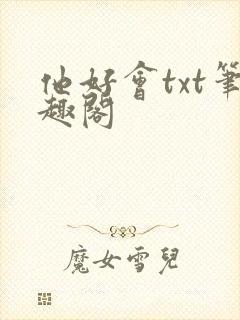 他好會txt筆
趣閣
魔女雪兒